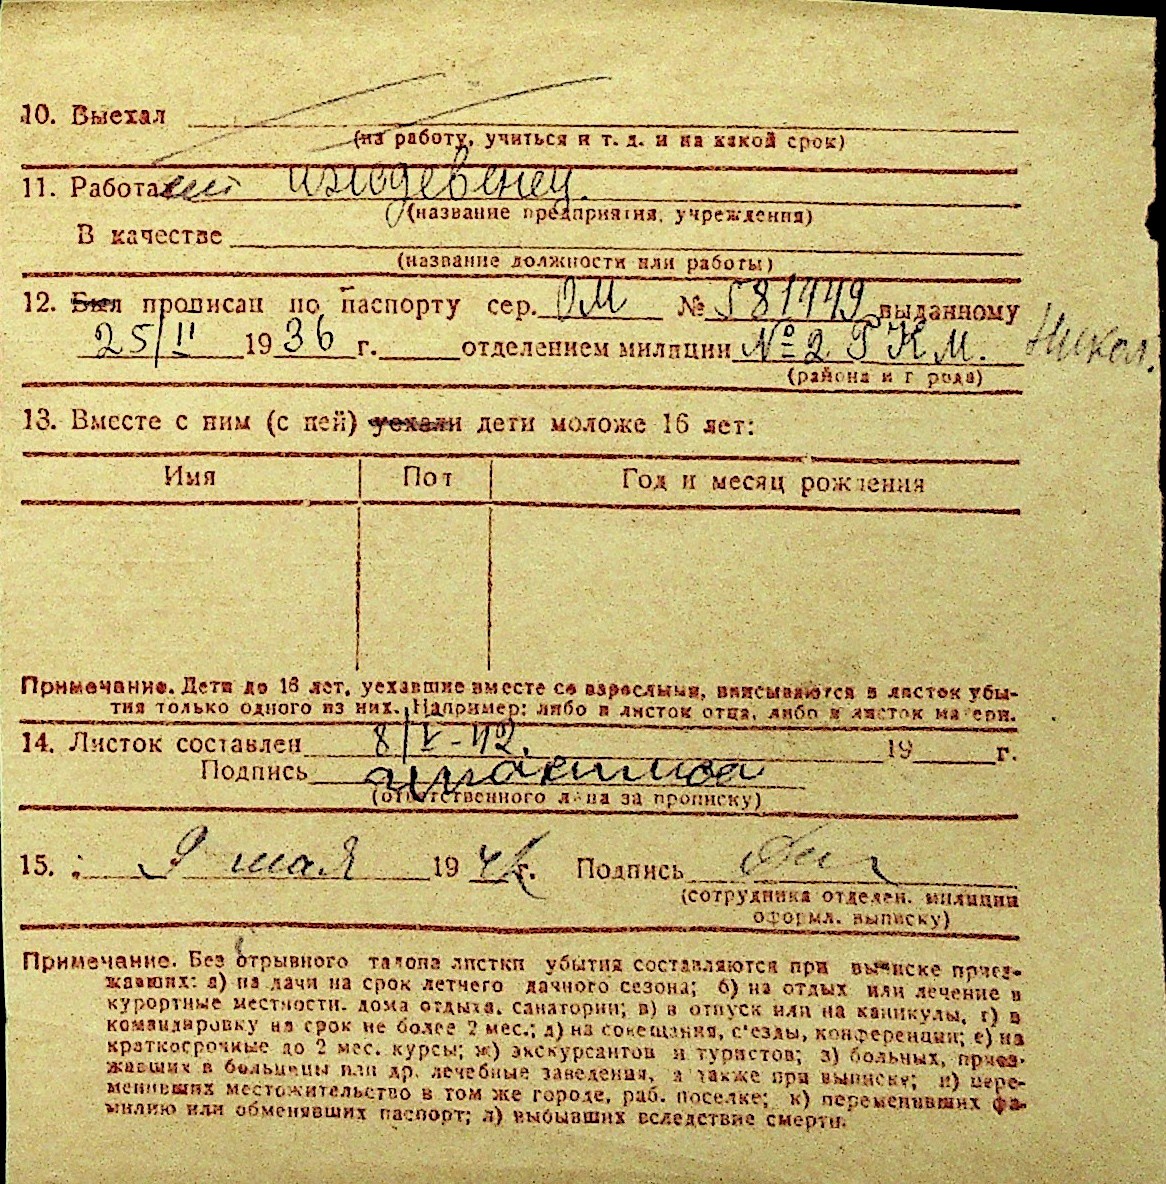 10. Выехал
(на работу, учиться и т. д. и на какой срок)
11. Работает иждевенец.
(название предприятия, учреждения)
В качестве
(название должности или работы)
12. Был прописан по паспорту сер. ОМ № 581449 выданному
25/II 1936 г. отделением милиции № 2 Р К М. Никол.
(района и города)
13. Вместе с ним (с ней) уехали дети моложе 16 лет:
Имя Пол Год и месяц рождения
Примечание. Дети до 16 лет, уехавшие вместе со взрослыми, вписываются в листок убы-
тия только одного из них. Например: либо в листок отца, либо в листок матери.
14. Листок составлен 8/V-42. 19 г.
Подпись
(ответственного лица за прописку)
15. 9 мая 1942 г. Подпись
(сотрудника отделен. милиции
оформл. выписку)
Примечание. Без отрывного талона листки убытия составляются при выписке приез-
жавших: а) на дачи на срок летнего дачного сезона; б) на отдых или лечение в
курортные местности, дома отдыха, санатории; в) в отпуск или на каникулы, г) в
командировку на срок не более 2 мес.; д) на совещания, с'езды, конференции; е) на
краткосрочные до 2 мес. курсы; ж) экскурсантов и туристов; з) больных, приез-
жавших в больницы или др. лечебные заведения, а также при выписке; и) пере-
менивших местожительство в том же городе, раб. поселке; к) переменивших фа-
милию или обменявших паспорт; л) выбывших вследствие смерти.